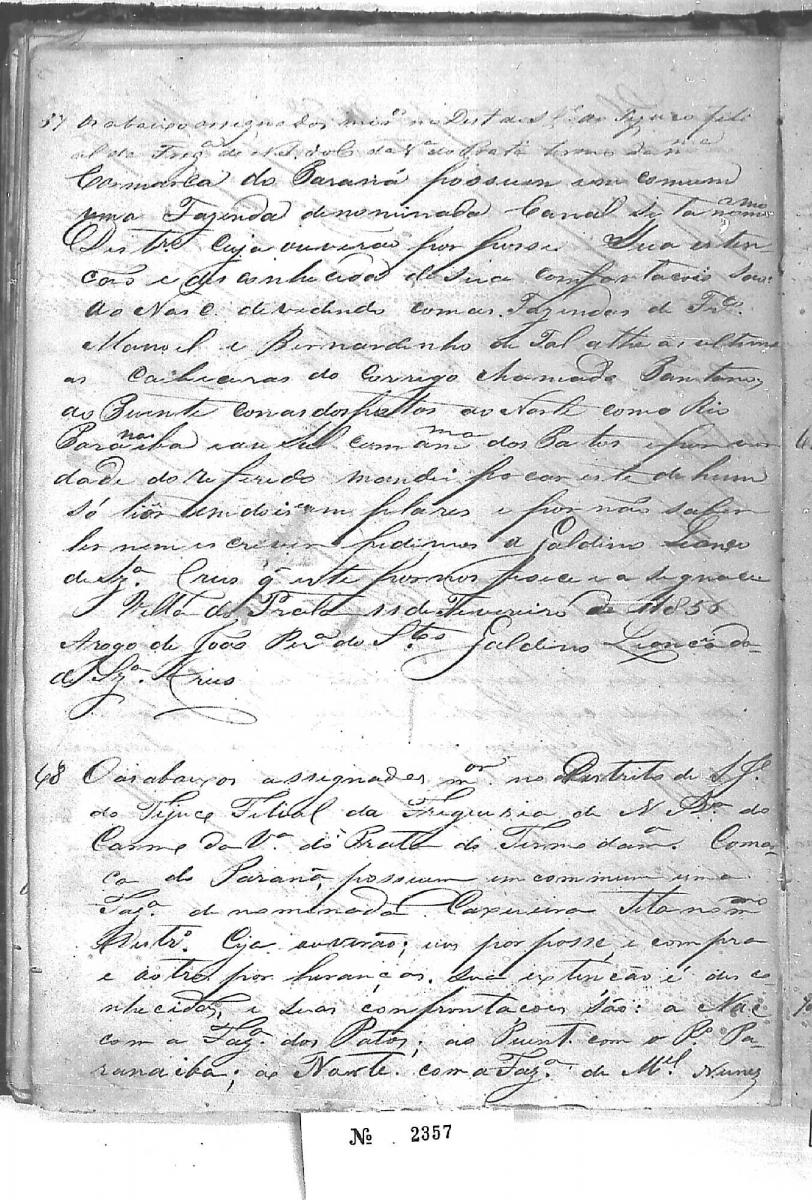 37 Os abaixo assignados mor.s no Dest. de S. J.e do Tejuco fili
al da Freg.a de N. S. da V.a do Prata termo da m.ma
Comarca do Paraná possuem em comum
uma Fazenda denominada Canal sita no mmo
Destr.o Cuja ouverão por posse Sua esten
ção e desconhecida de sua comfortacois são:
Ao Nasc. devedindo com as Fazendas de Fr.co
Manoel e Bernardinho de Tal athe as ultima
as cabiceiras do Corrigo chamado Bantano,
ao Puente com as dos Pattos ao Norte com o Rio
Paranaiba e au Sul com a mma dos Patos e por ver
dade do referido mandei pacar este de hum
só tior em dois em plares e por não saber
ler nem escrever pedimos a Galdino Leonço
de Sz.a Crus q. este por nos fisece e asignace
Villa do Prata 11 de Fevereiro de 1856
Arogo de João Per.a do S.tos Galdino Leoncio da
de Sz.a Crus
48 Os abaixos assignados mor. no Distrito de S. J.e
do Tijuco Filial da Freguezia de N. Sr.a do
Carmo da V.a do Prata do Termo da m.a Comar
ca do Paraná, possuem em commum uma
Faz.a denomenada Caxueira Sita no mmo
Distr.o Cuja ouverão; uns por posse, e compra
e outro por heranças. Sua extinção é desco
nhecida, e suas confrontacoes são: a Nac
com a Faz.a dos Patos; ao Puent. com o R.o Pa-
ranaiba; ao Norte com a Faz.a de M.el Nunez
Nº 2357